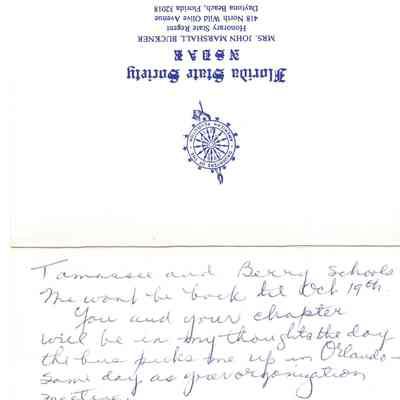 MRS. JOHN MARSHALL BUCKNER
Honorary State Regent
418 North Wild Olive Avenue
Daytona Beach, Florida 32018
Florida State Society
NSDAR
Tamassee and Berry Schools
We wont be back til Oct 19th.
You and your chapter
will be in my thoughts the day
the bus picks me up in Orlando -
same day as your organization
meeting.